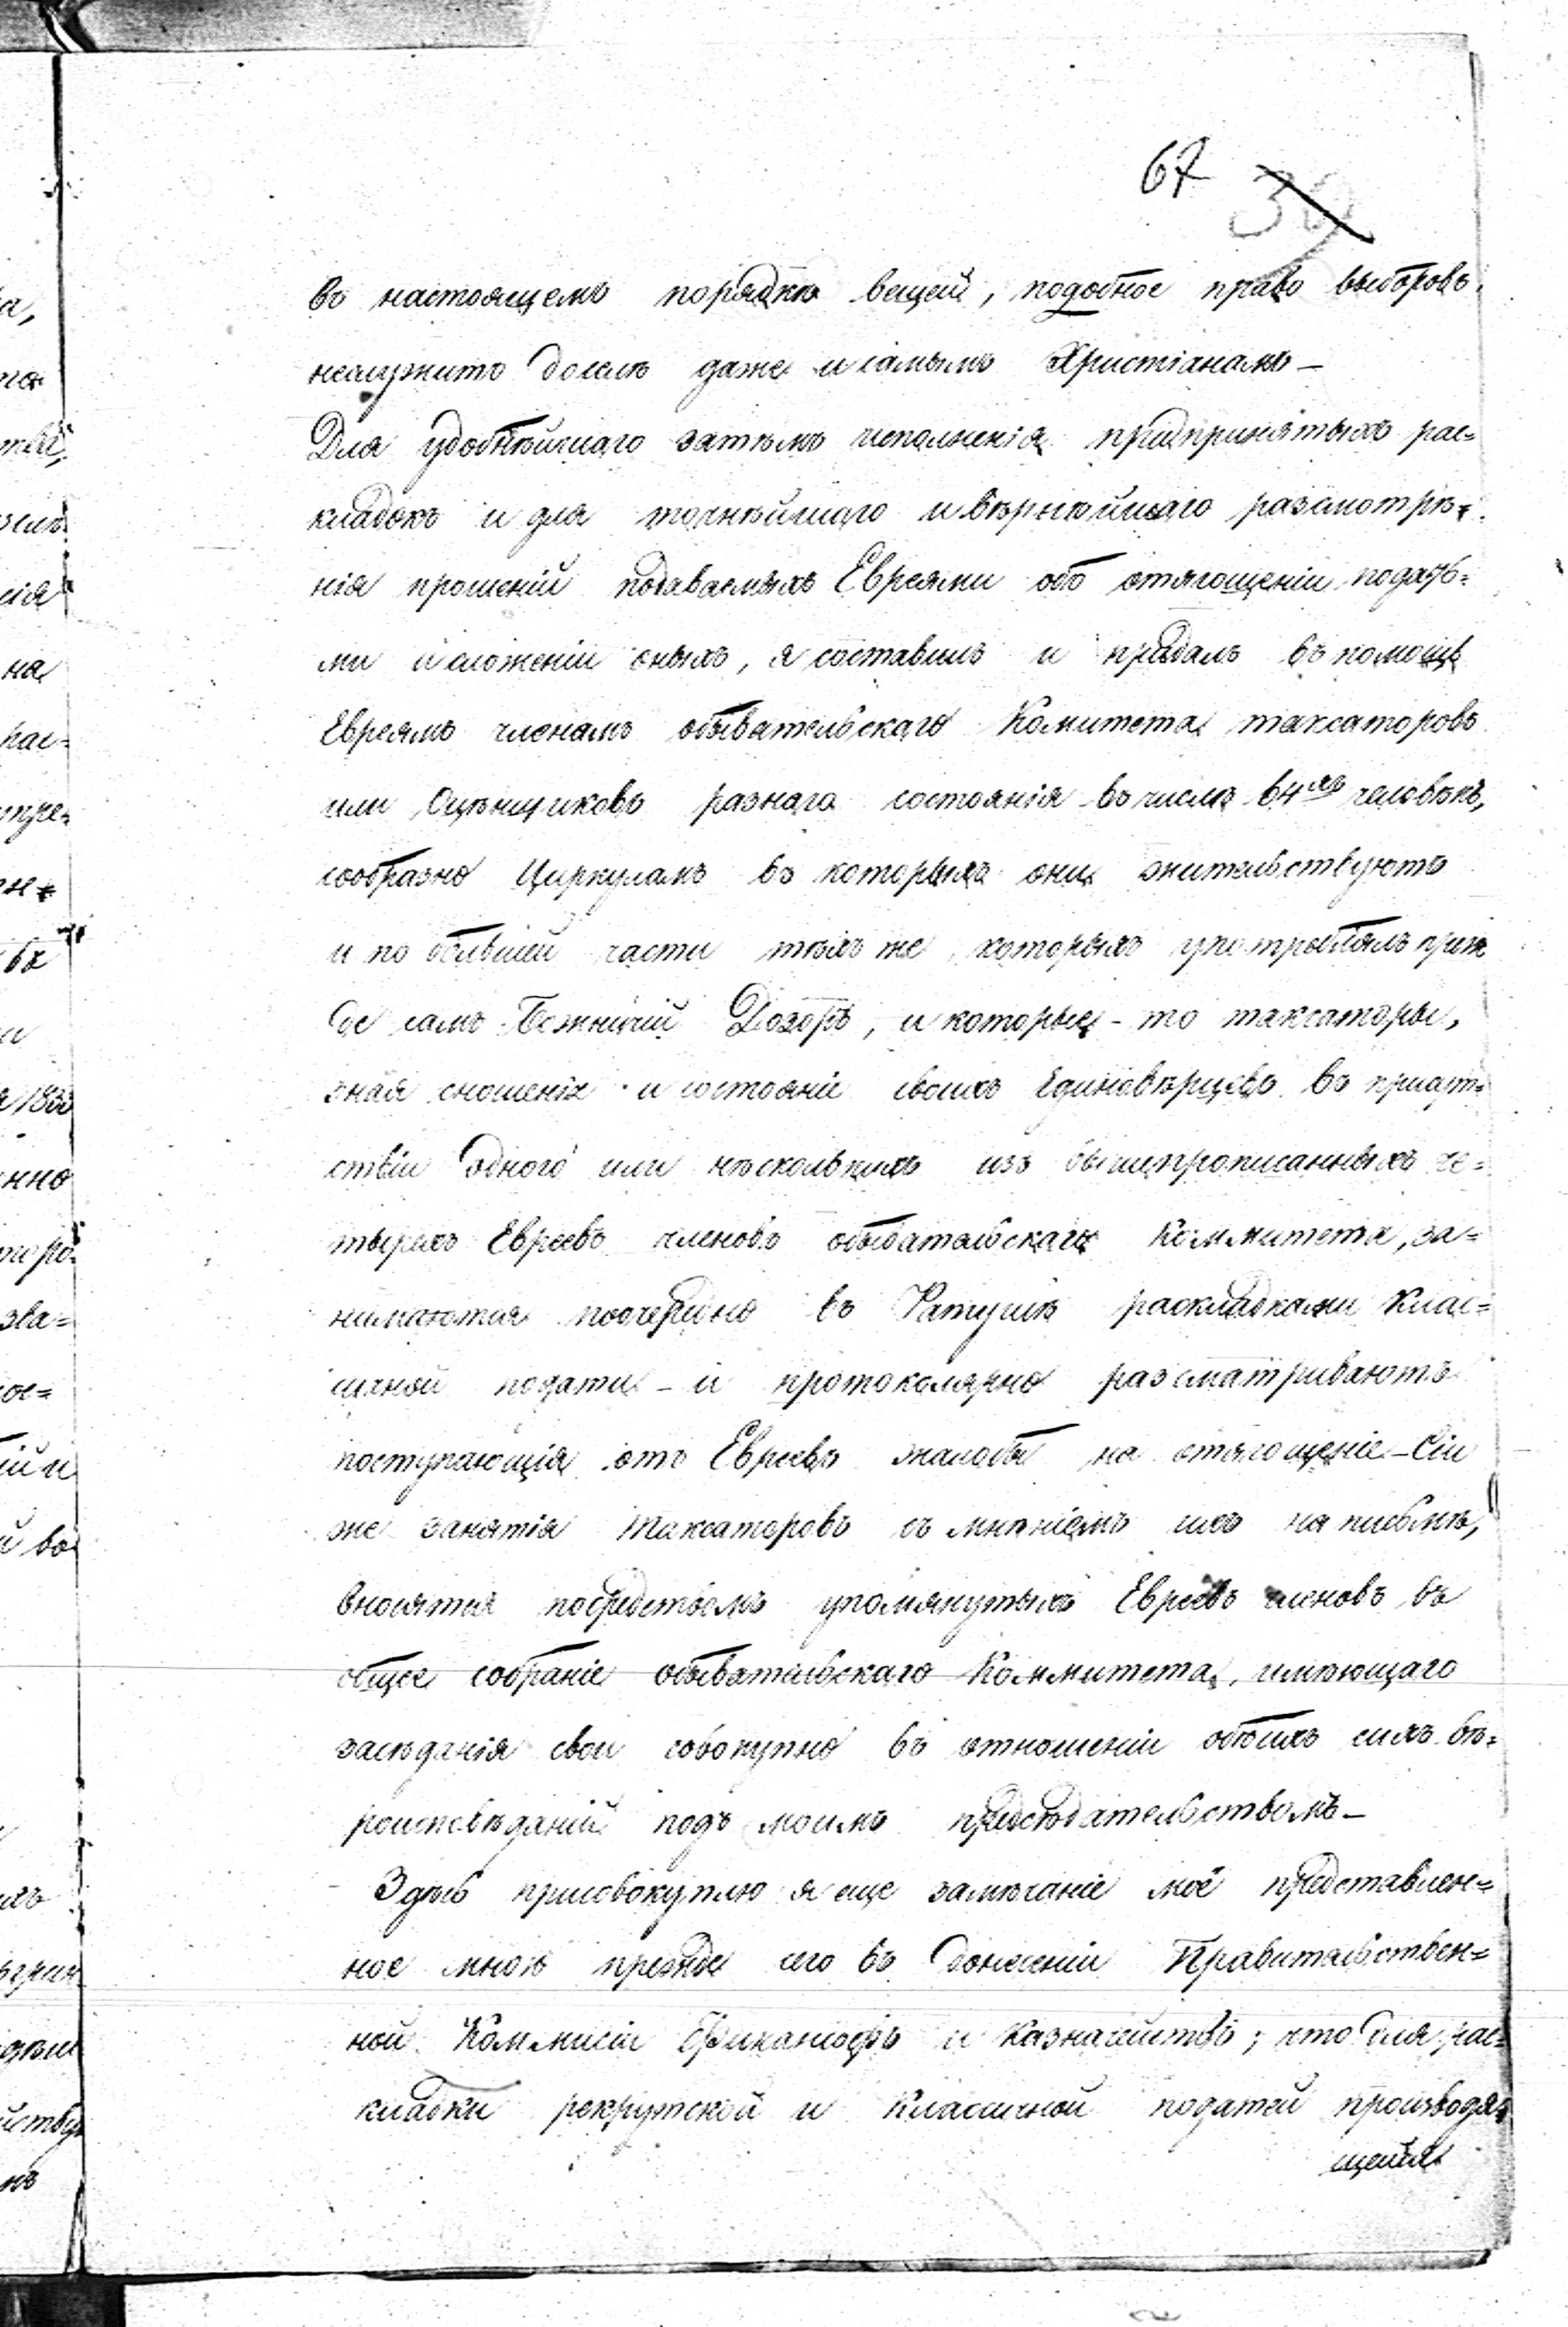 67 39
въ настоящемъ порядкѣ вещей, подобное право выборовъ
неслужитъ доселѣ даже и самымъ Христіанамъ—
Для удобнѣйшаго затѣмъ исполненія предпринятыхъ рас=
кладокъ и для точнѣйшаго и вѣрнѣйшаго разсмотрѣ=
нія прошеній подаваемыхъ Евреями объ отягощеніи податъ=
ми и сложеніи оныхъ, я составилъ и придалъ въ помощь
Евреямъ членамъ обывательскаго Комитета таксаторовъ
или Оцѣнщиковъ разнаго состоянія въ числѣ 64 человѣкъ,
сообразно Циркуламъ въ которыхъ они жительствуютъ
и по большей части тѣхъ же, которыхъ употреблялъ преж
де самъ Божничій Дозоръ, и которые-то таксаторы,
зная сношенія и состояніе своихъ Единовѣрцевъ въ присут=
ствіи одного или нѣсколькихъ изъ вышепрописанныхъ че=
тырехъ Евреевъ членовъ обывательскаго Коммитета, за=
нимаются поочередно въ Ратушѣ раскладками Клас=
сичной подати — и протоколярно разсматриваютъ
поступающія отъ Евреевъ жалобы на отягощеніе — Сіи
же занятія Таксаторовъ съ мнѣніемъ ихъ на письмѣ,
вносятся посредствомъ упомянутыхъ Евреевъ членовъ въ
общее собраніе обывательскаго Коммитета, имѣющаго
засѣданія свои совокупно въ отношеніи обѣихъ сихъ вѣ=
роисповѣданій подъ моимъ предсѣдательствомъ—
Здѣсь присовокуплю я еще замѣчаніе моё представлен=
ное мною прежде сего въ донесеніи Правительствен=
ной Коммисіи Финансовъ и Казначейства; что для рас=
кладки рекрутской и Классичной податей производя=
щейся